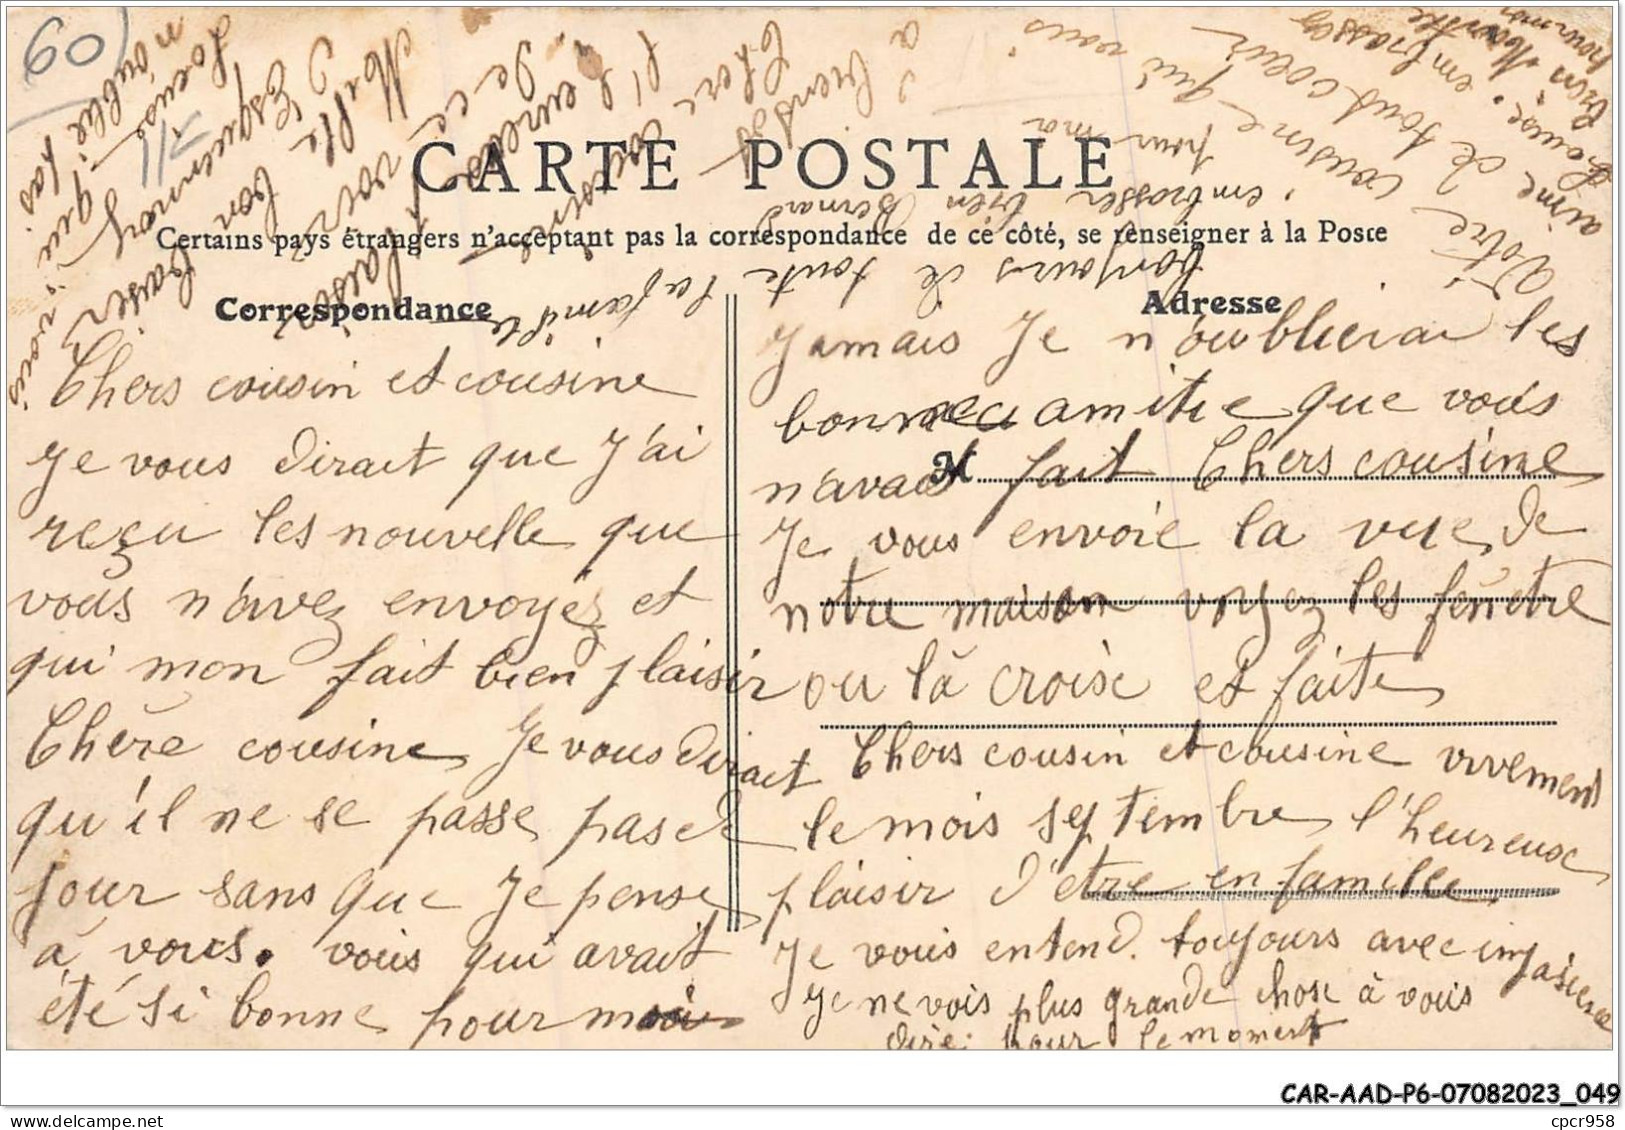 60
CARTE POSTALE
Certains pays étrangers n'acceptant pas la correspondance de ce côté, se renseigner à la Poste
Correspondance
Chers cousin et cousine
Je vous dirait que J'ai
reçu les nouvelle que
vous n'avez envoyez et
qui mon fait bien plaisir
Chère cousine Je vous dirait
qu'il ne se passe pas
jour sans que Je pense
à vous. vous qui avait
été si bonne pour moi
Adresse
M
Jamais Je n'oublierai les
bonne amitie que vous
n'avais fait Chers cousine
Je vous envoie la vue de
notre maison voyez les fenêtre
ou là croise et faite
Chers cousin et cousine vivement
le mois septembre l'heureuse
plaisir d'être en famille
Je vous entend. toujours avec impasience
Je ne vois plus grande chose à vous
dire. pour le moment
Votre cousine qui vous
aime de tout coeur
embrasser
bien
pour moi
embrasser bien Bernard
pour ma
bonjours de toute
la famille
à bientôt
Chère cousine
l'heureuse
de ce
Melle
voir
bon baiser
n'oublie pas
qui vous
CAR-AAD-P6-07082023_049
cpcr958